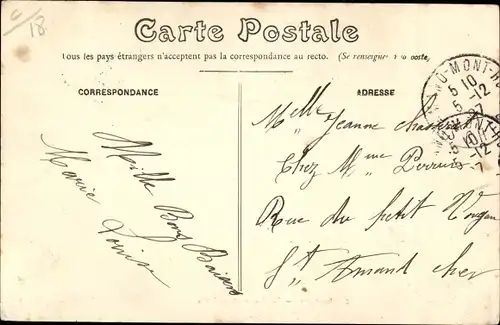 6/18
Carte Postale
Tous les pays étrangers n'acceptent pas la correspondance au recto. (Se renseigner à la poste)
CORRESPONDANCE
ADRESSE
Mille Bons Baisers
Marie Louise
Melle Jeanne
Chez Mme Perrin
Rue du petit
St Amand Cher
5 10
5-12